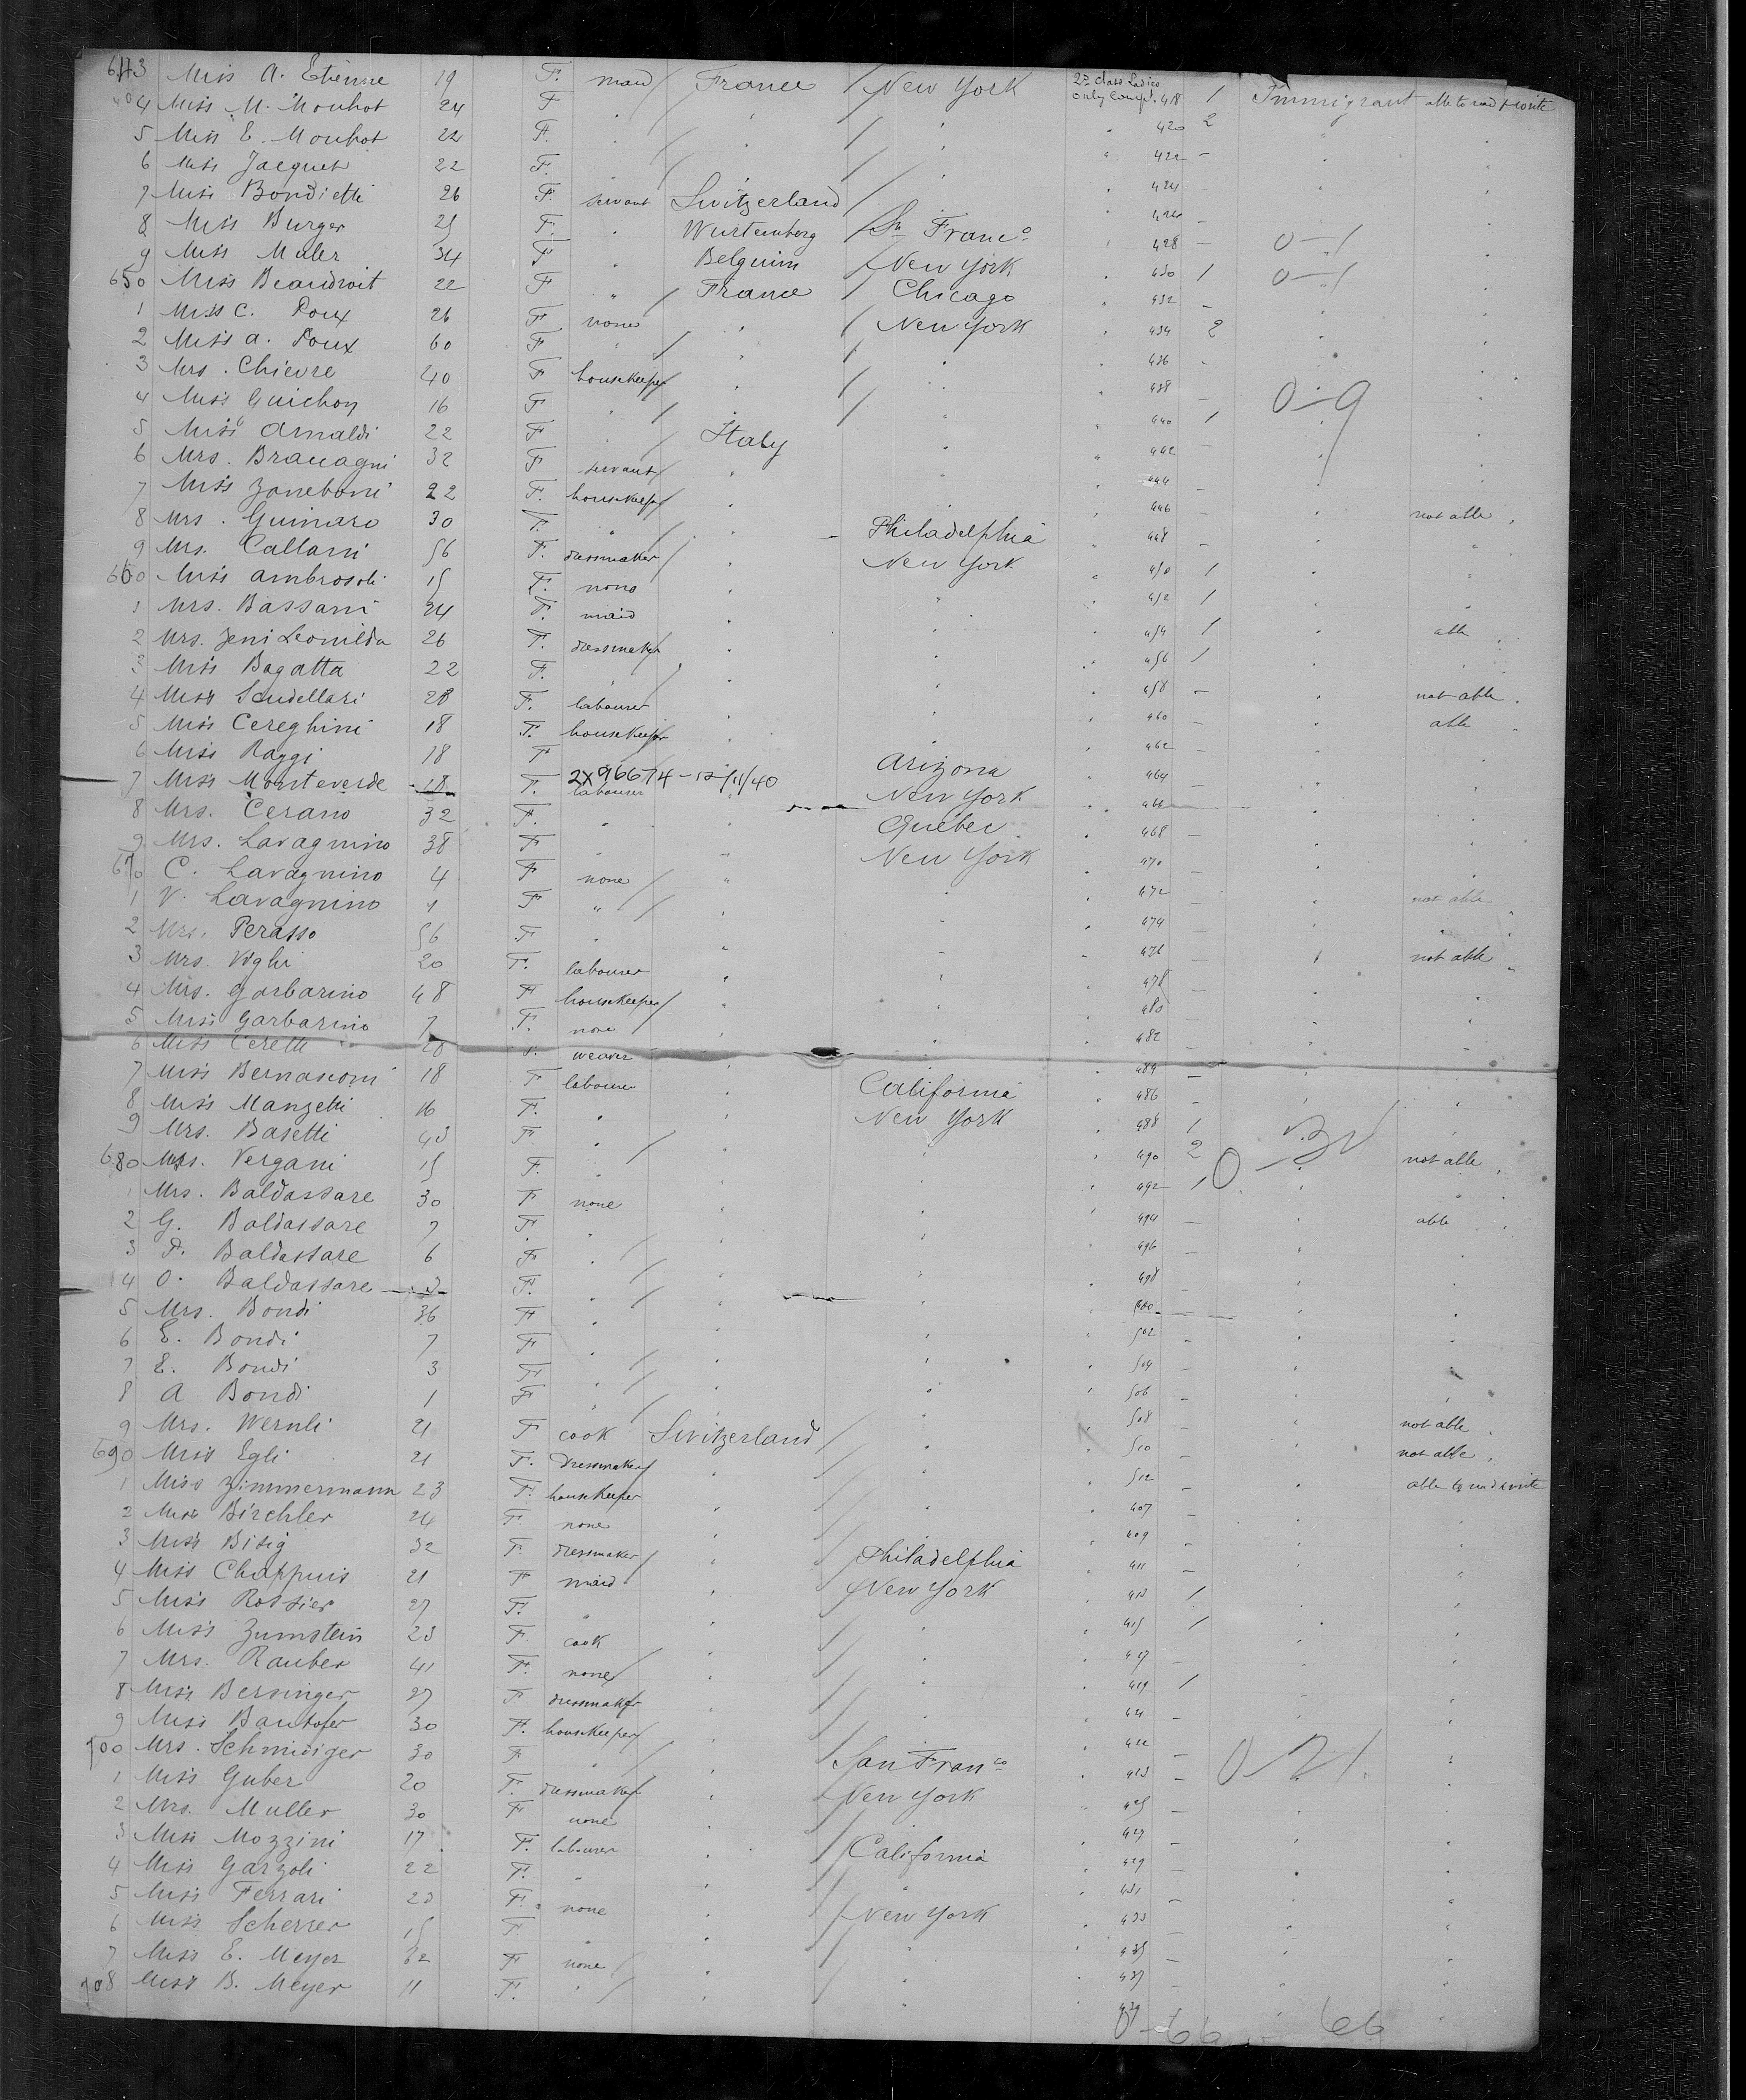 643 Miss A. Etienne 19 F. maid France New York 2nd class Ladies only comp. 418 1 Immigrant able to read & write
4 Miss M. Mouhot 24 F " " " " 420 2 " "
5 Miss E. Mouhot 22 F. " " " " 422 – " "
6 Miss Jacquet 22 F. " " " " 424 " "
7 Miss Bondietti 26 F. servant Switzerland " " 426 – " "
8 Miss Burger 25 F. " Wurtemberg Sn Franco " 428 – 0–1
9 Miss Maler 34 F " Belguim New York " 430 1 0–1
650 Miss Beaudroit 22 F " France Chicago " 432 – " "
1 Miss C. Poux 26 F none " New York " 434 2 " "
2 Miss A. Poux 60 F " " " " 436 – " "
3 Mrs. Chievre 40 F housekeeper " " " 438 – " "
4 Miss Guichon 16 F " " " " 440 1 0–9 "
5 Miss Arnaldi 22 F " Italy " " 442 – " "
6 Mrs. Brauagni 32 F servant " " " 444 – " "
7 Miss Zoneboni 22 F. housekeeper " " " 446 – " not able "
8 Mrs. Guinaro 30 F. " " Philadelphia " 448 – " "
9 Mrs. Callani 56 F. dressmaker " New York " 450 1 " "
660 Miss Ambrosoli 15 F. none " " " 452 1 " "
1 Mrs. Bassani 24 F. maid " " " 454 1 " able "
2 Mrs. Jeni Leonilda 26 F. dressmaker " " " 456 1 " "
3 Miss Bagatta 22 F. " " " " 458 – " not able "
4 Miss Scudellari 28 F. labourer " " " 460 – " able "
5 Miss Cereghini 18 F. housekeeper " " " 462 – " "
6 Miss Raggi 18 F " " Arizona " 464 – " "
7 Miss Monteverde 18 F. 2X96674 – 12/11/40 labourer " New York " 466 – " "
8 Mrs. Cerano 32 F. " " Quebec " 468 – " "
9 Mrs. Lavagnino 38 F " " New York " 470 – " "
670 C. Lavagnino 4 F none " " " 472 – " not able "
1 V. Lavagnino 1 F " " " " 474 – " "
2 Mrs. Perasso 56 F " " " " 476 – " not able "
3 Mrs. Vighi 20 F. labourer " " " 478 – " "
4 Mrs. Garbarino 48 F housekeeper " " " 480 – " "
5 Miss Garbarino 7 F. none " " " 482 – " "
6 Miss Ceretti 20 F. weaver " " " 484 – " "
7 Miss Bernasconi 18 F labourer " California " 486 – " "
8 Miss Manzetti 16 F. " " New York " 488 1 " "
9 Mrs. Basetti 43 F " " " " 490 2 " not able "
680 Mrs. Vergani 15 F. " " " " 492 1 " "
1 Mrs. Baldassare 30 F none " " " 494 – " able "
2 G. Baldassare 7 F. " " " " 496 – " "
3 P. Baldassare 6 F " " " " 498 – " "
4 O. Baldassare 3 F. " " " " 500 – " "
5 Mrs. Bondi 36 F " " " " 502 – " "
6 E. Bondi 7 F " " " " 504 – " "
7 E. Bondi 3 F " " " " 506 – " "
8 A Bondi 1 F " " " " 508 – " not able "
9 Mrs. Wernli 21 F cook Switzerland " " 510 – " not able "
690 Miss Egli 21 F. dressmaker " " " 512 – " able to read & write
1 Miss Zimmermann 23 F. housekeeper " " " 407 – " "
2 Miss Birchler 24 F none " " " 409 – " "
3 Miss Bisig 32 F dressmaker " Philadelphia " 411 – " "
4 Miss Chappuis 21 F maid " New York " 413 1 " "
5 Miss Rossier 27 F. " " " " 415 1 " "
6 Miss Zumstein 23 F cook " " " 417 – " "
7 Mrs. Rauber 41 F none " " " 419 1 " "
8 Miss Bersinger 27 F dressmaker " " " 421 – " "
9 Miss Bauhofer 30 F. housekeeper " " " 422 – " "
700 Mrs. Schmidiger 30 F " " San Franco " 423 – 0–21 "
1 Miss Guber 20 F. dressmaker " New York " 425 – " "
2 Mrs. Muller 30 F none " " " 427 – " "
3 Miss Mozzini 17 F. labourer " California " 429 – " "
4 Miss Garzoli 22 F. " " " " 431 – " "
5 Miss Ferrari 23 F. none " New York " 433 – " "
6 Miss Scherrer 15 F " " " " 435 – " "
7 Miss E. Meyer 32 F none " " " 437 – " "
708 Miss B. Meyer 11 F. " " " " 439 " "
66 66